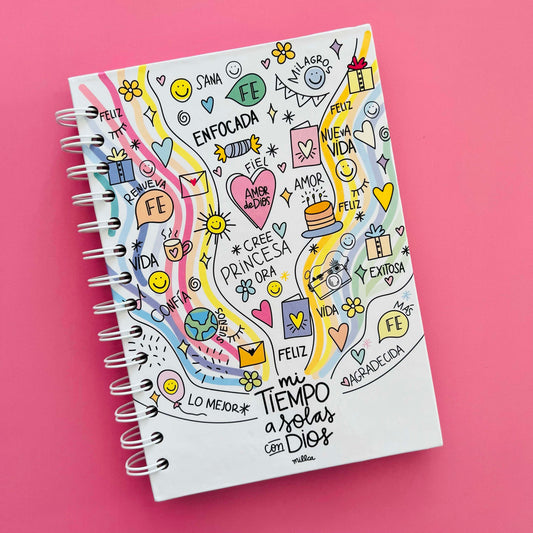 FELIZ
SANA
FE
MILAGROS
ENFOCADA
FELIZ
NUEVA
VIDA
FIEL
RENUEVA
FE
AMOR
de DIOS
AMOR
FELIZ
CREE
PRINCESA
ORA
VIDA
CONFÍA
SUEÑOS
EXITOSA
VIDA
MÁS
FE
FELIZ
AGRADECIDA
LO MEJOR
mi
TIEMPO
a solas
con DIOS
millca